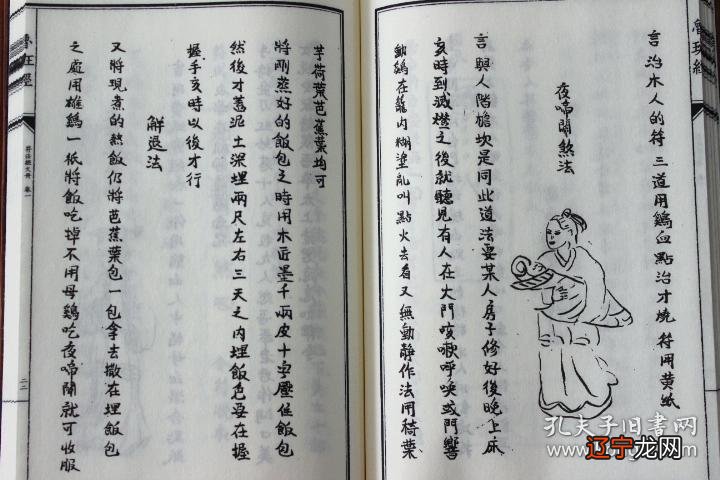 魯班經
言治木人的符三道用鷄血點治才燒 符用黄紙
夜啼鬧煞法
言與人階膽坎是同此道法要某人房子修好後晚上床
亥時到滅燈之後就聽見有人在大門咳嗽呼喚或門響
動鷄在籠内糊塗亂叫點火去看又無動静作法用
芋荷葉芭蕉葉均可
將剛蒸好的飯包之時用木匠墨千兩皮十字壓住飯包
然後才蓋泥土深埋兩尺左右三天之内埋飯包要在握
握手亥時以後才行
解退法
又將現煮的熬飯仍將芭蕉葉包一包拿去撒在埋飯包
之處用雄鷄一祇將飯吃掉不用母鷄吃夜啼鬧就可收服
魯班經
二二
孔夫子旧書网
辽宁龙网